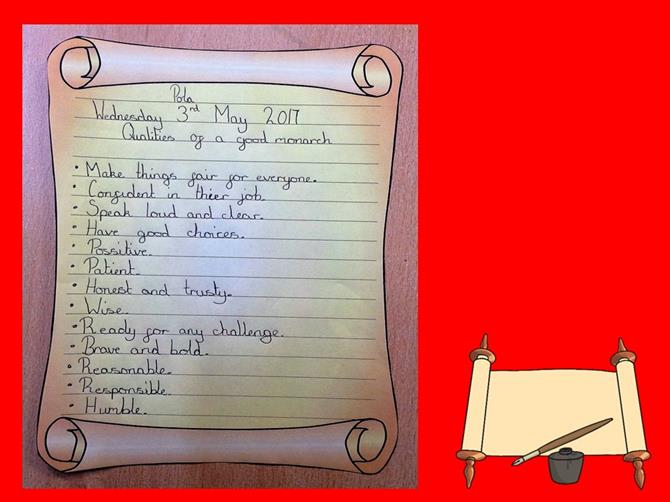 Pola
Wednesday 3rd May 2017
Qualities of a good monarch
• Make things fair for everyone.
• Confident in thier job.
• Speak loud and clear.
• Have good choices.
• Possitive.
• Patient.
• Honest and trusty.
• Wise.
• Ready for any challenge.
• Brave and bold.
• Reasonable.
• Responsible.
• Humble.